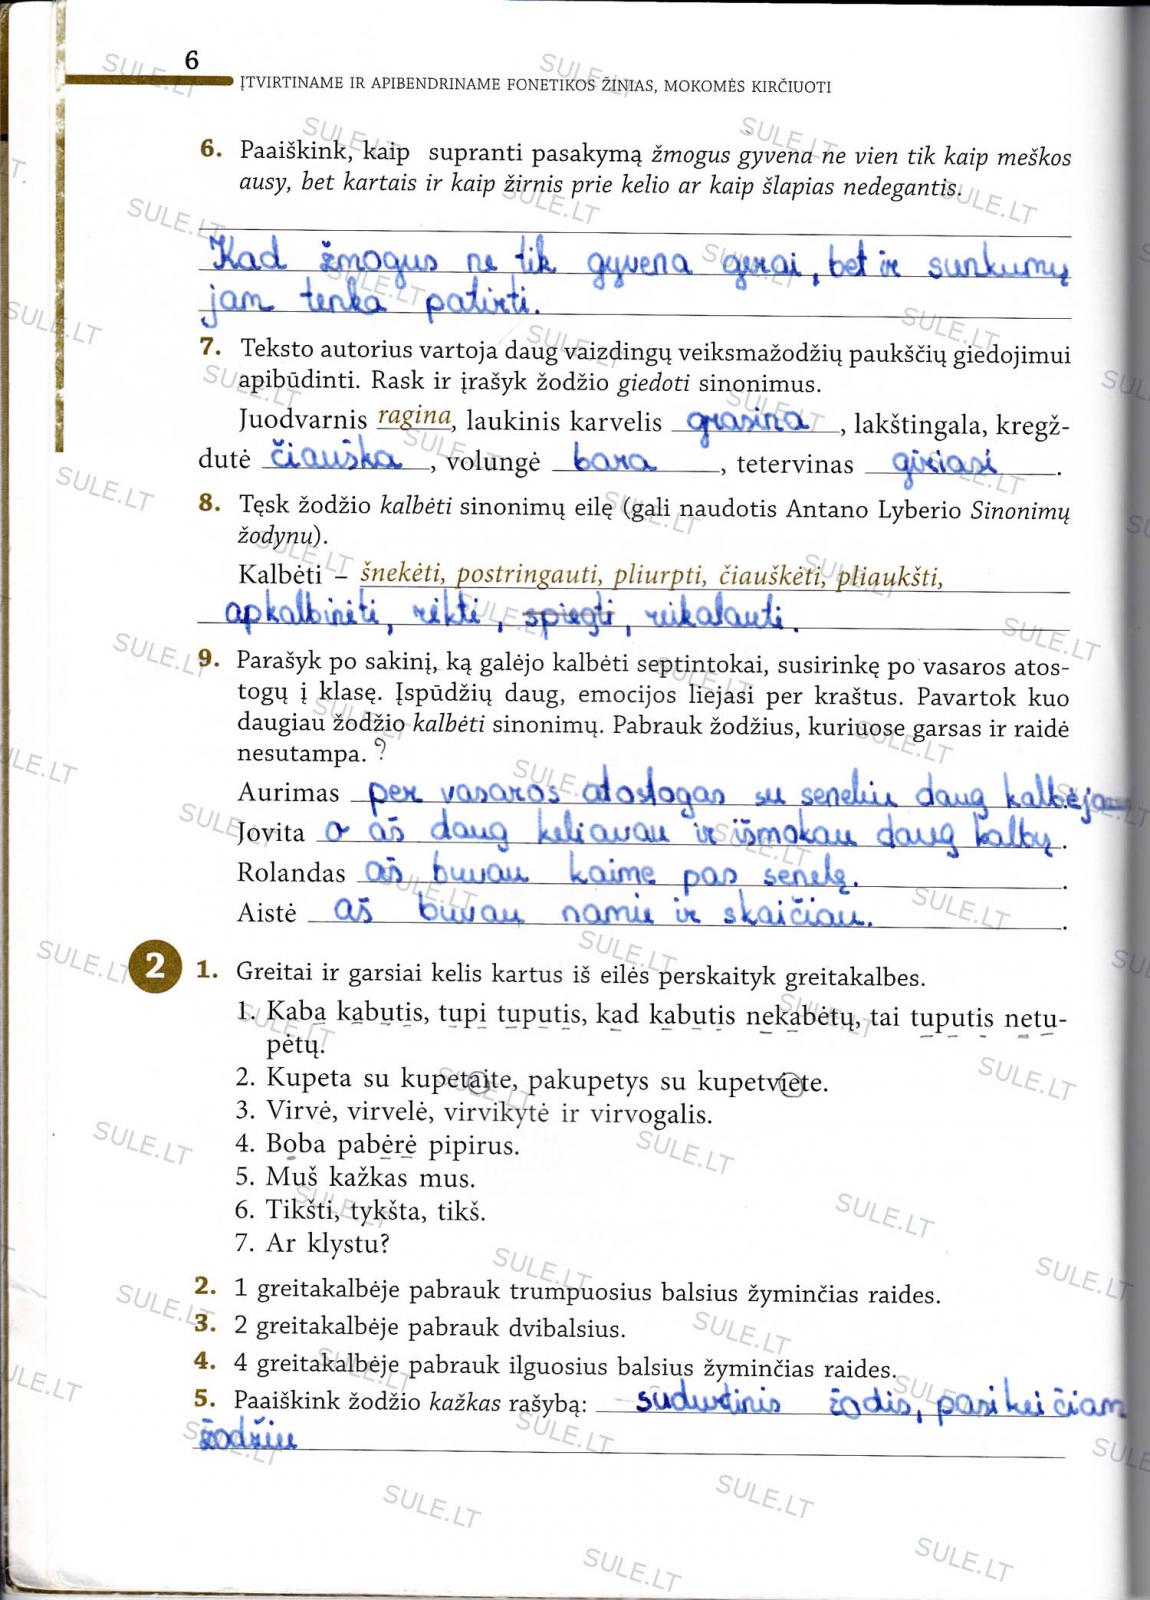 6
ĮTVIRTINAME IR APIBENDRINAME FONETIKOS ŽINIAS, MOKOMĖS KIRČIUOTI
6. Paaiškink, kaip supranti pasakymą žmogus gyvena ne vien tik kaip meškos
ausy, bet kartais ir kaip žirnis prie kelio ar kaip šlapias nedegantis.
Kad žmogus ne tik gyvena gerai, bet ir sunkumų
jam tenka patirti.
7. Teksto autorius vartoja daug vaizdingų veiksmažodžių paukščių giedojimui
apibūdinti. Rask ir įrašyk žodžio giedoti sinonimus.
Juodvarnis ragina, laukinis karvelis grasina, lakštingala, kregž-
dutė čiauška, volungė bara, tetervinas giriasi.
8. Tęsk žodžio kalbėti sinonimų eilę (gali naudotis Antano Lyberio Sinonimų
žodynu).
Kalbėti – šnekėti, postringauti, pliurpti, čiauškėti, pliaukšti,
apkalbinėti, rėkti, spiegti, reikalauti.
9. Parašyk po sakinį, ką galėjo kalbėti septintokai, susirinkę po vasaros atos-
togų į klasę. Įspūdžių daug, emocijos liejasi per kraštus. Pavartok kuo
daugiau žodžio kalbėti sinonimų. Pabrauk žodžius, kuriuose garsas ir raidė
nesutampa. ?
Aurimas per vasaros atostogas su seneliu daug kalbėjau
Jovita o aš daug keliavau ir išmokau daug kalbų.
Rolandas aš buvau kaime pas senelę.
Aistė aš buvau namie ir skaičiau.
2 1. Greitai ir garsiai kelis kartus iš eilės perskaityk greitakalbes.
1. Kaba kabutis, tupi tuputis, kad kabutis nekabėtų, tai tuputis netu-
pėtų.
2. Kupeta su kupetaite, pakupetys su kupetviete.
3. Virvė, virvelė, virvikytė ir virvogalis.
4. Boba pabėrė pipirus.
5. Muš kažkas mus.
6. Tikšti, tykšta, tikš.
7. Ar klystu?
2. 1 greitakalbėje pabrauk trumpuosius balsius žyminčias raides.
3. 2 greitakalbėje pabrauk dvibalsius.
4. 4 greitakalbėje pabrauk ilguosius balsius žyminčias raides.
5. Paaiškink žodžio kažkas rašybą: sudurtinis žodis, pasikeičiam
žodžiu
SULE.LT